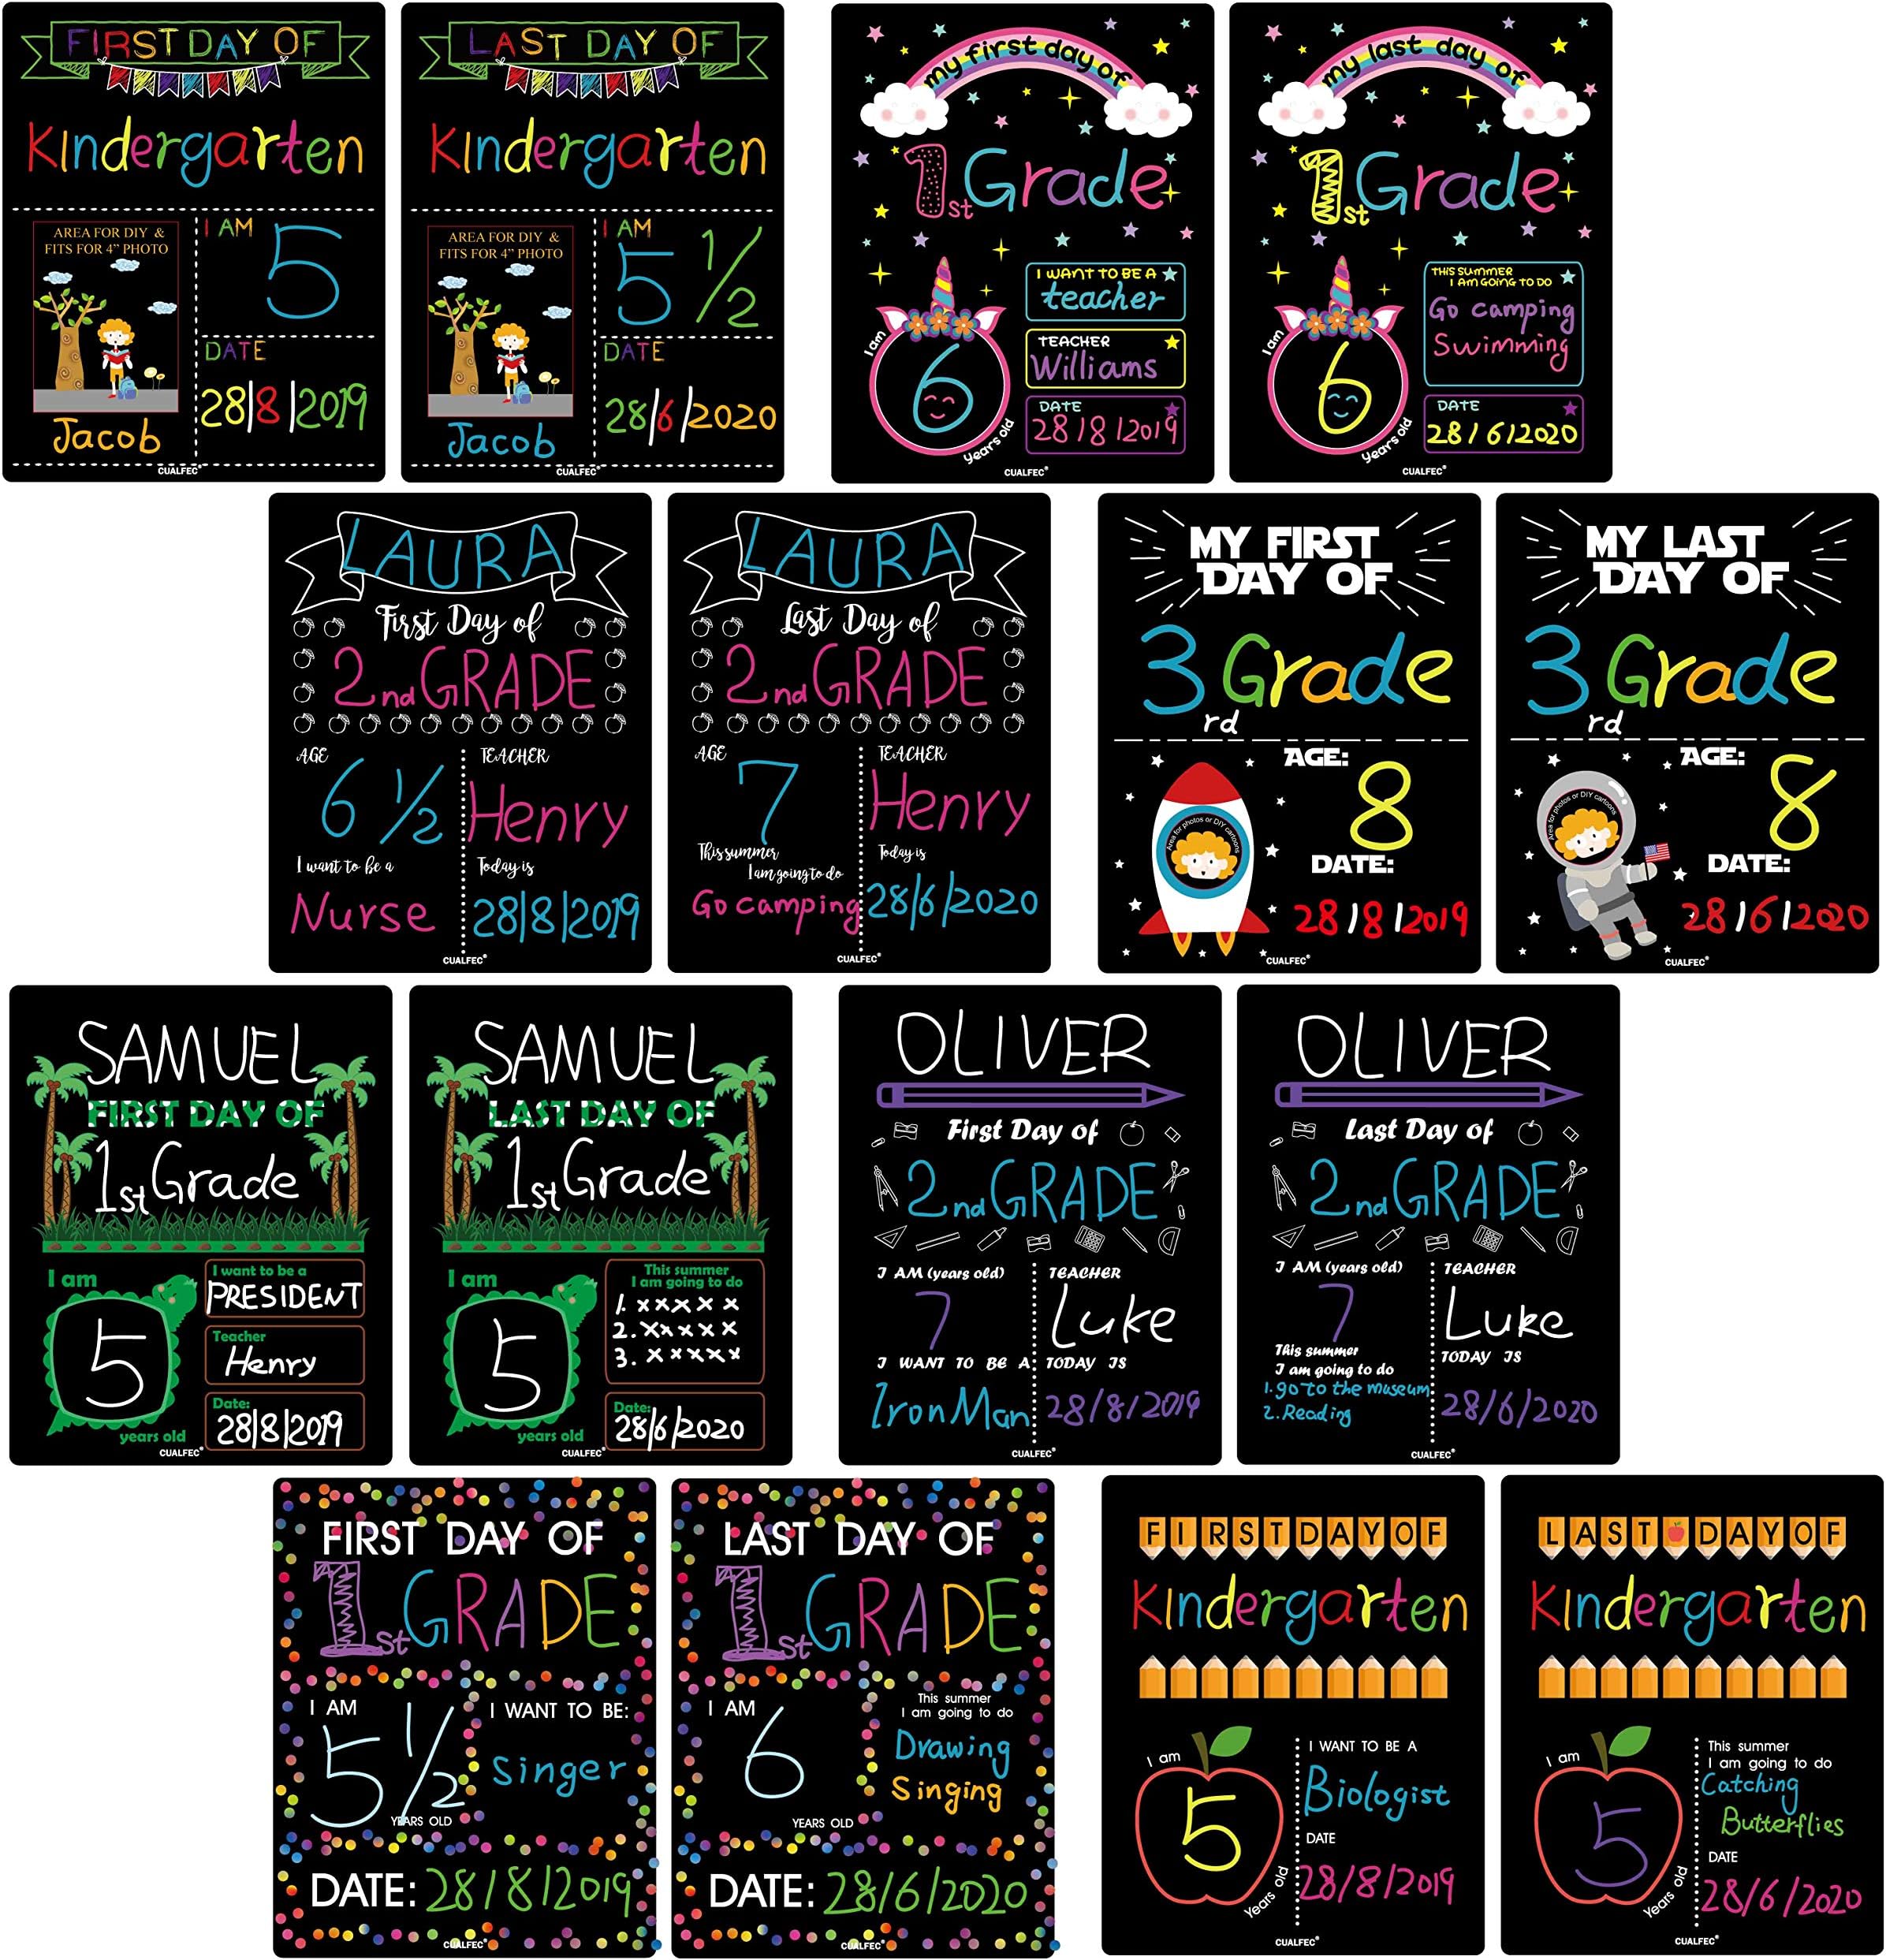 FIRST DAY OF
Kindergarten
AREA FOR DIY &
FITS FOR 4” PHOTO
Jacob
I AM
5
DATE
28|8|2019
CUALFEC®
LAST DAY OF
Kindergarten
AREA FOR DIY &
FITS FOR 4” PHOTO
Jacob
I AM
5 1/2
DATE
28/6/2020
CUALFEC®
my first day of
1st Grade
I am
6
years old
I WANT TO BE A
teacher
TEACHER
Williams
DATE
28/8/2019
CUALFEC®
my last day of
1st Grade
I am
6
years old
THIS SUMMER
I AM GOING TO DO
Go camping
Swimming
DATE
28/6/2020
CUALFEC®
LAURA
First Day of
2nd GRADE
AGE
6 1/2
TEACHER
Henry
I want to be a
Nurse
Today is
28|8|2019
CUALFEC®
LAURA
Last Day of
2nd GRADE
AGE
7
TEACHER
Henry
This summer
I am going to do
Go camping
Today is
28/6/2020
CUALFEC®
MY FIRST
DAY OF
3rd Grade
Area for photos or DIY cartoons
AGE:
8
DATE:
28/8/2019
CUALFEC®
MY LAST
DAY OF
3rd Grade
Area for photos or DIY cartoons
AGE:
8
DATE:
28/6/2020
CUALFEC®
SAMUEL
FIRST DAY OF
1st Grade
I am
5
years old
I want to be a
PRESIDENT
Teacher
Henry
Date:
28|8|2019
CUALFEC®
SAMUEL
LAST DAY OF
1st Grade
I am
5
years old
This summer
I am going to do
1. x x x x x
2. x x x x x
3. x x x x x
Date:
28/6/2020
CUALFEC®
OLIVER
First Day of
2nd GRADE
I AM (years old)
7
TEACHER
Luke
I WANT TO BE A
Iron Man
TODAY IS
28/8/2019
CUALFEC®
OLIVER
Last Day of
2nd GRADE
I AM (years old)
7
TEACHER
Luke
This summer
I am going to do
1. go to the museum
2. Reading
TODAY IS
28/6/2020
CUALFEC®
FIRST DAY OF
1st GRADE
I AM
5 1/2
YEARS OLD
I WANT TO BE:
Singer
DATE: 28/8/2019
CUALFEC®
LAST DAY OF
1st GRADE
I AM
6
YEARS OLD
This summer
I am going to do
Drawing
Singing
DATE: 28/6/2020
CUALFEC®
FIRST DAY OF
Kindergarten
I am
5
Years old
I WANT TO BE A
Biologist
DATE
28/8/2019
CUALFEC®
LAST DAY OF
Kindergarten
I am
5
Years old
This summer
I am going to do
Catching
Butterflies
DATE
28/6/2020
CUALFEC®